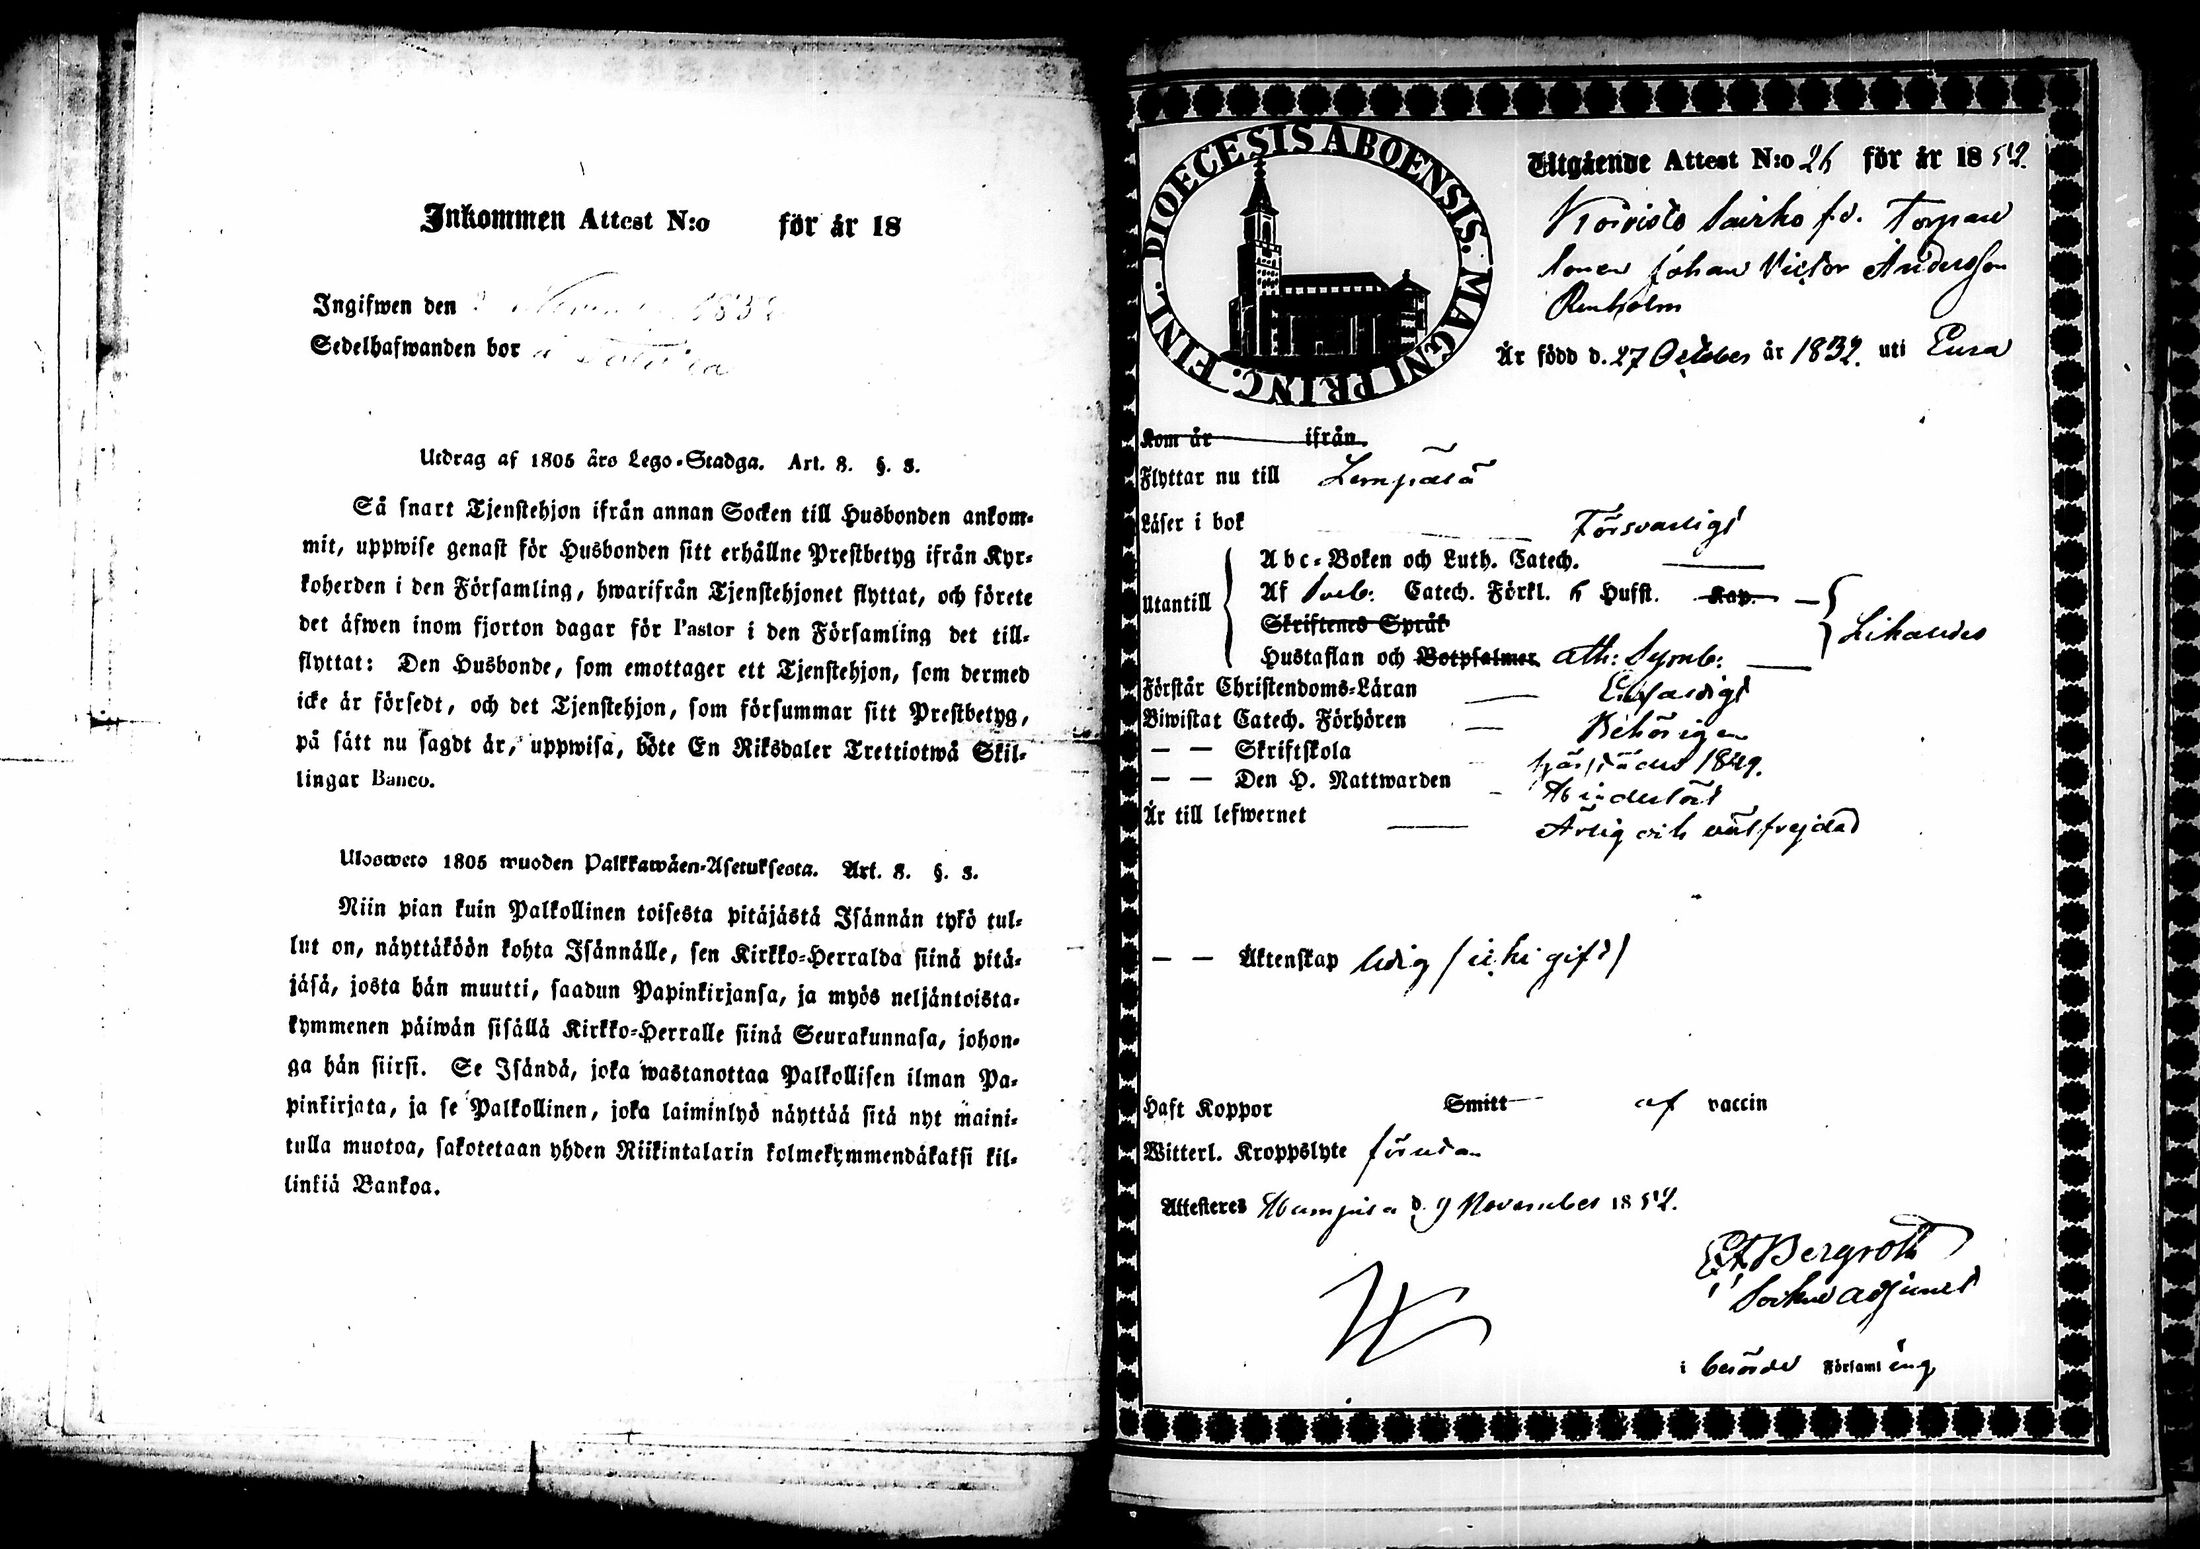 Inkommen Attest N:o för år 18
Ingifwen den
Sedelhafwanden bor
Utdrag af 1805 års Lego-Stadga. Art. 8. §. 3.
Så snart Tjenstehjon ifrån annan Socken till Husbonden ankom-
mit, uppwise genast för Husbonden sitt erhållne Prestbetyg ifrån Kyr-
koherden i den Församling, hwarifrån Tjenstehjonet flyttat, och förete
det äfwen inom fjorton dagar för Pastor i den Församling det till-
flyttat: Den Husbonde, som emottager ett Tjenstehjon, som dermed
icke är försedt, och det Tjenstehjon, som försummar sitt Prestbetyg,
på sätt nu sagdt är, uppwisa, böte En Riksdaler Trettiotwå Skil-
lingar Banco.
Ulosweto 1805 wuoden Palkkawäen-Asetuksesta. Art. 8. §. 3.
Niin pian kuin Palkollinen toisesta pitäjästä Isännän tykö tul-
lut on, näyttäköön kohta Isännälle, sen Kirkko-Herralda siinä pitä-
jäsä, josta hän muutti, saadun Papinkirjansa, ja myös neljäntoista-
kymmenen päiwän sisällä Kirkko-Herralle siinä Seurakunnasa, johon-
ga hän siirsi. Se Isändä, joka wastanottaa Palkollisen ilman Pa-
pinkirjata, ja se Palkollinen, joka laiminlyö näyttää sitä nyt maini-
tulla muotoa, sakotetaan yhden Riikintalarin kolmekymmendäkaksi kil-
linkiä Bankoa.
DIOECESIS ABOENSIS. MAGNI PRINC. FINL.
Utgående Attest N:o 26 för år 1852.
Koivisto f.d. Torpare
sonen Johan Victor Andersson
Renholm
Är född d. 27 October år 1832. uti Eura
Kom år ifrån
Flyttar nu till Lempälä
Läser i bok Försvarligt
Abc-Boken och Luth. Catech.
Utantill Af Sveb: Catech. Förkl. 6 Hufst. Kap. Likaledes
Skriftenes Språk
Hustaflan och Botpsalmer Ath: Symb:
Förstår Christendoms-Läran Enfaldigt
Biwistat Catech. Förhören Behörigen
— — Skriftskola 1849.
— — Den H. Nattwarden
Är till lefwernet Ärlig och välfrejdad
— — Äktenskap ledig (icke gift)
Haft Koppor Smitt af vaccin
Witterl. Kroppslyte förutan
Attesteres d. 9 November 1852.
Bergroth
Sockne adjunct
i berörde Församling